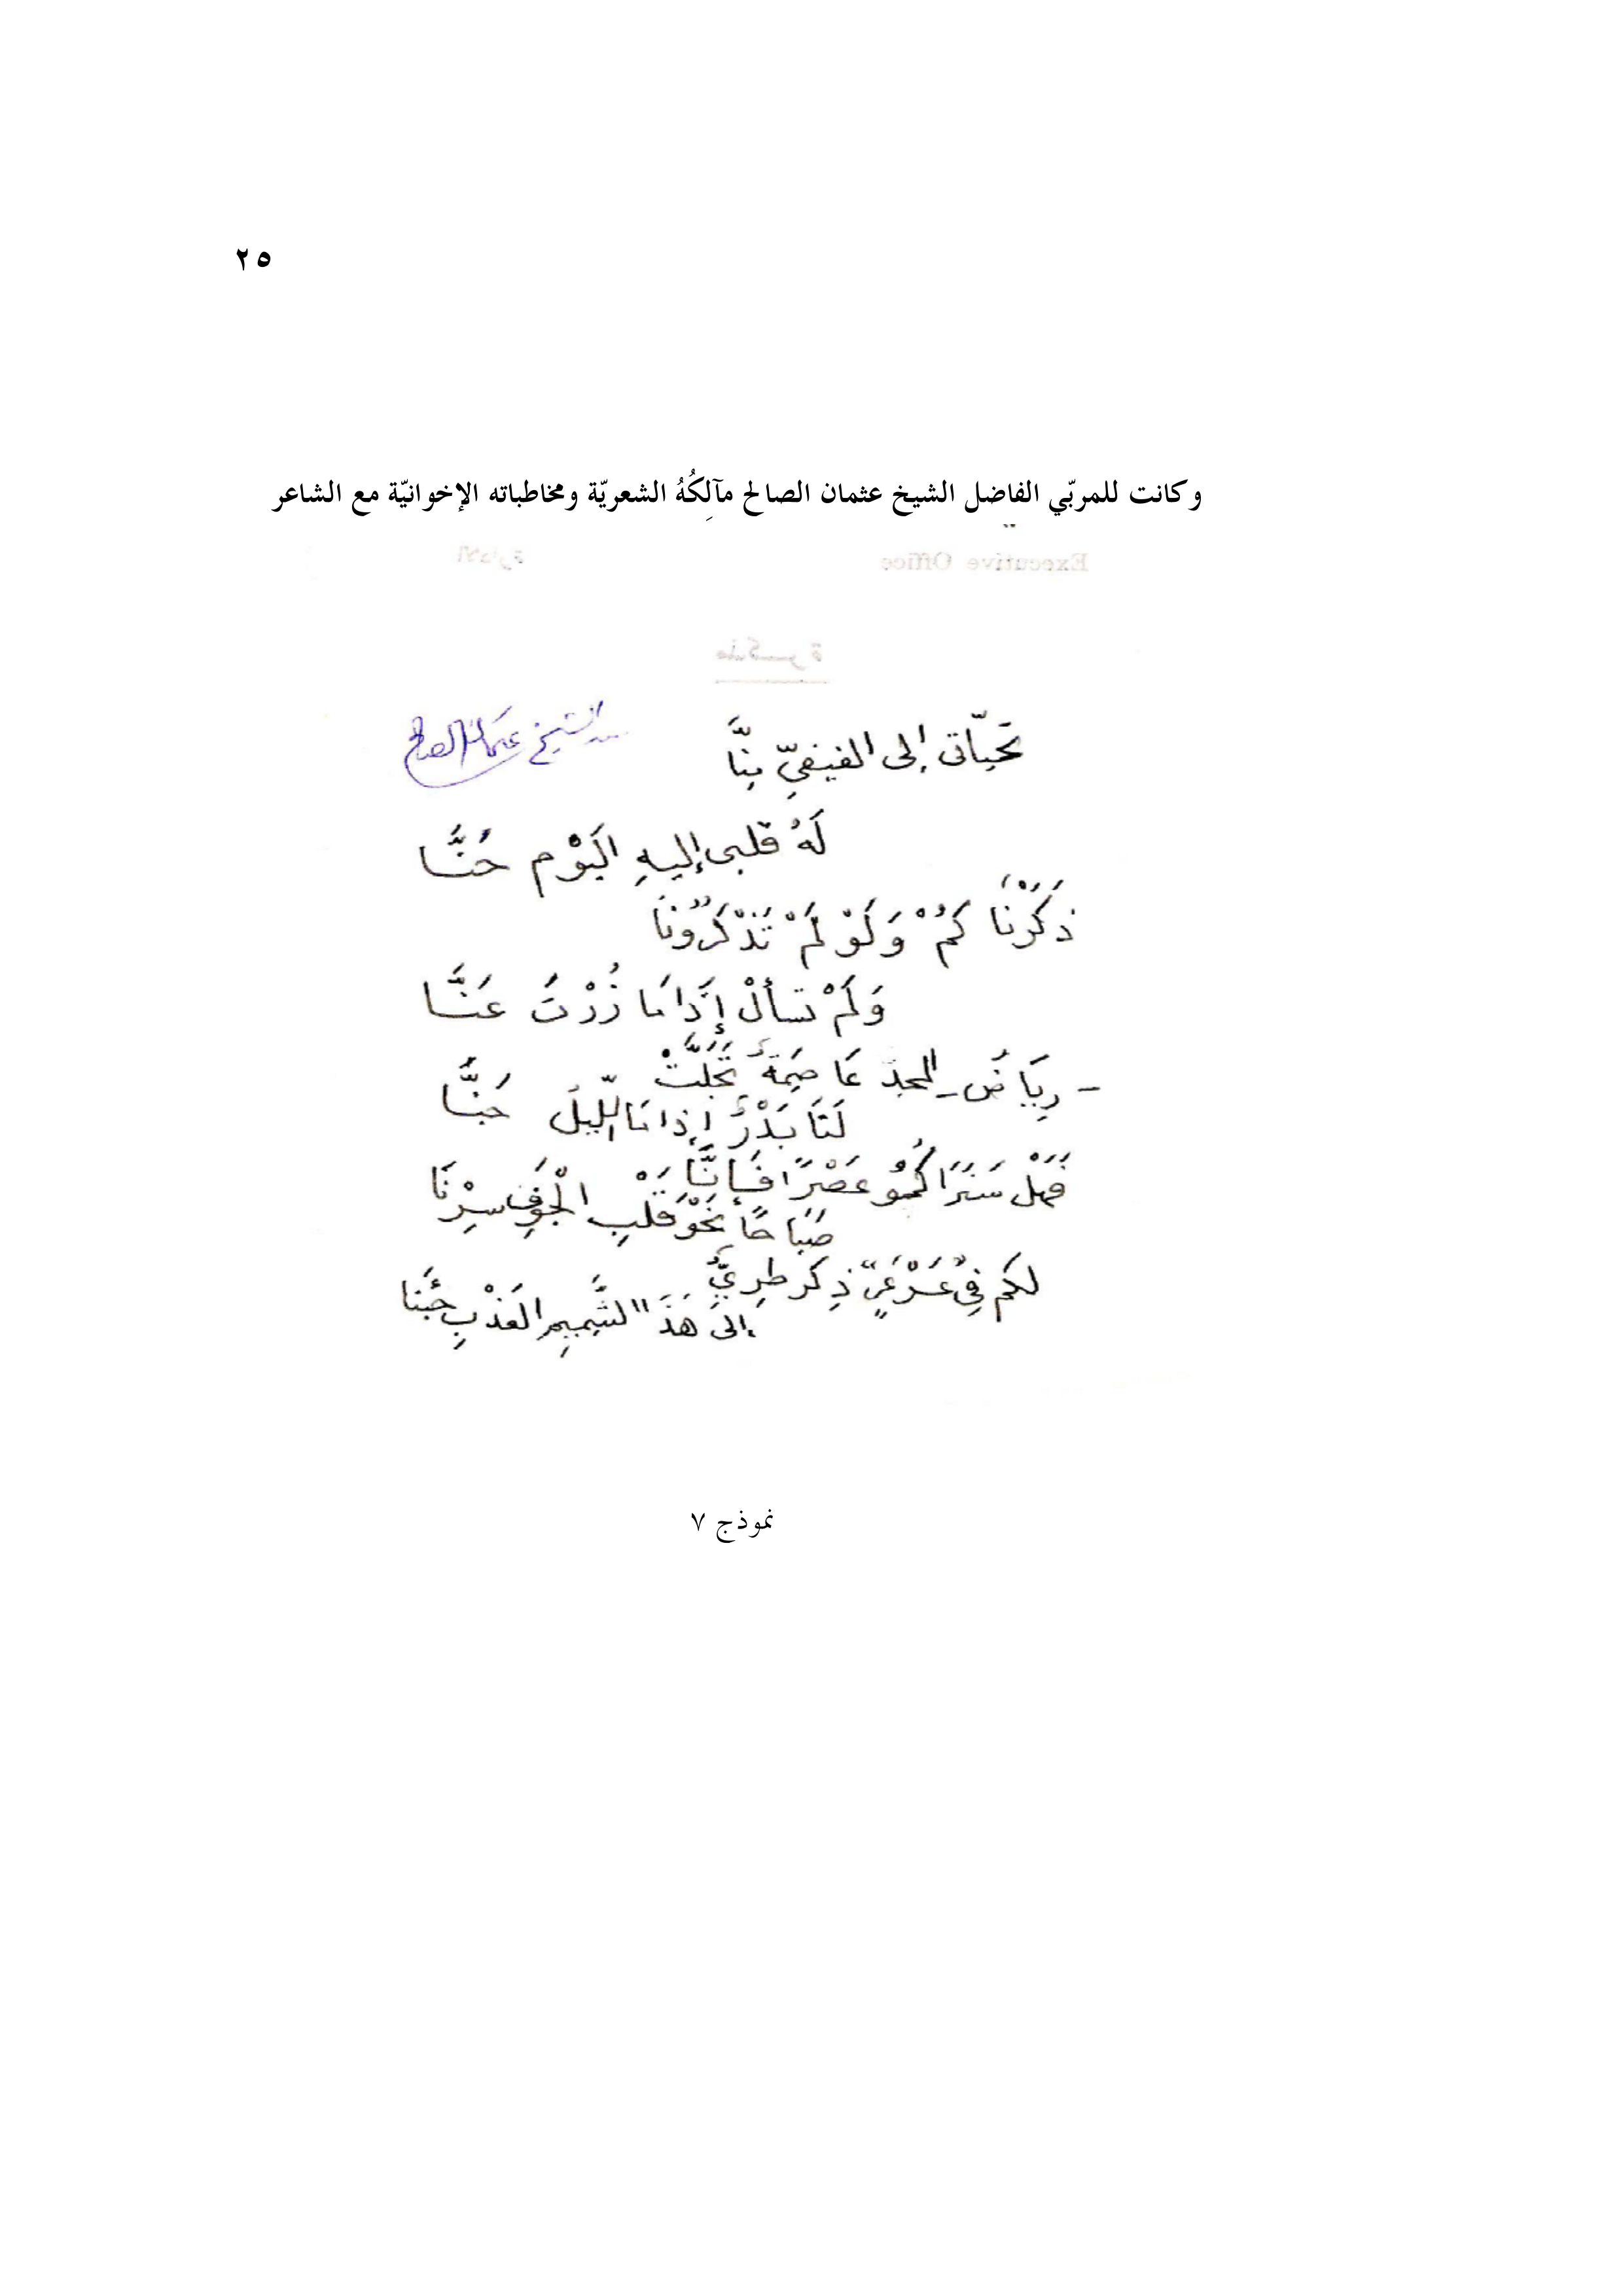 ٢٥
وكانت للمربّي الفاضل الشيخ عثمان الصالح مآلِكُهُ الشعريّة ومخاطباته الإخوانيّة مع الشاعر
Executive Office الادارة
مذكرة
تحيّاتى إلى الفيفيّ مِنَّا
الشيخ عثمان الصالح
لَهُ قلبى إليهِ اليَوْم حَنَّا
ذَكَرْنَا كُمْ وَلَوْ لَمْ تَذْكُرُونَا
وَلَمْ تسألْ إِذَا مَا زُرْتَ عَنَّا
- رِيَاضُ المجدِ عَاصِمَةٌ تَجَلَّتْ
لَنَا بَدْرٌ إذا مَا اللّيلَ جَنَّا
فَهَلْ سَنَرَاكُمُو عَصْرًا فَإنَّا
صَبَاحًا نَحْوَ قَلْبِ الْجَوفِ سِرْنَا
لكم فِى عَرْعَرٍ ذِكر طرِيٌّ
إلى هَذَا الشَّمِيمِ العَذْبِ جِئْنا
نموذج ٧